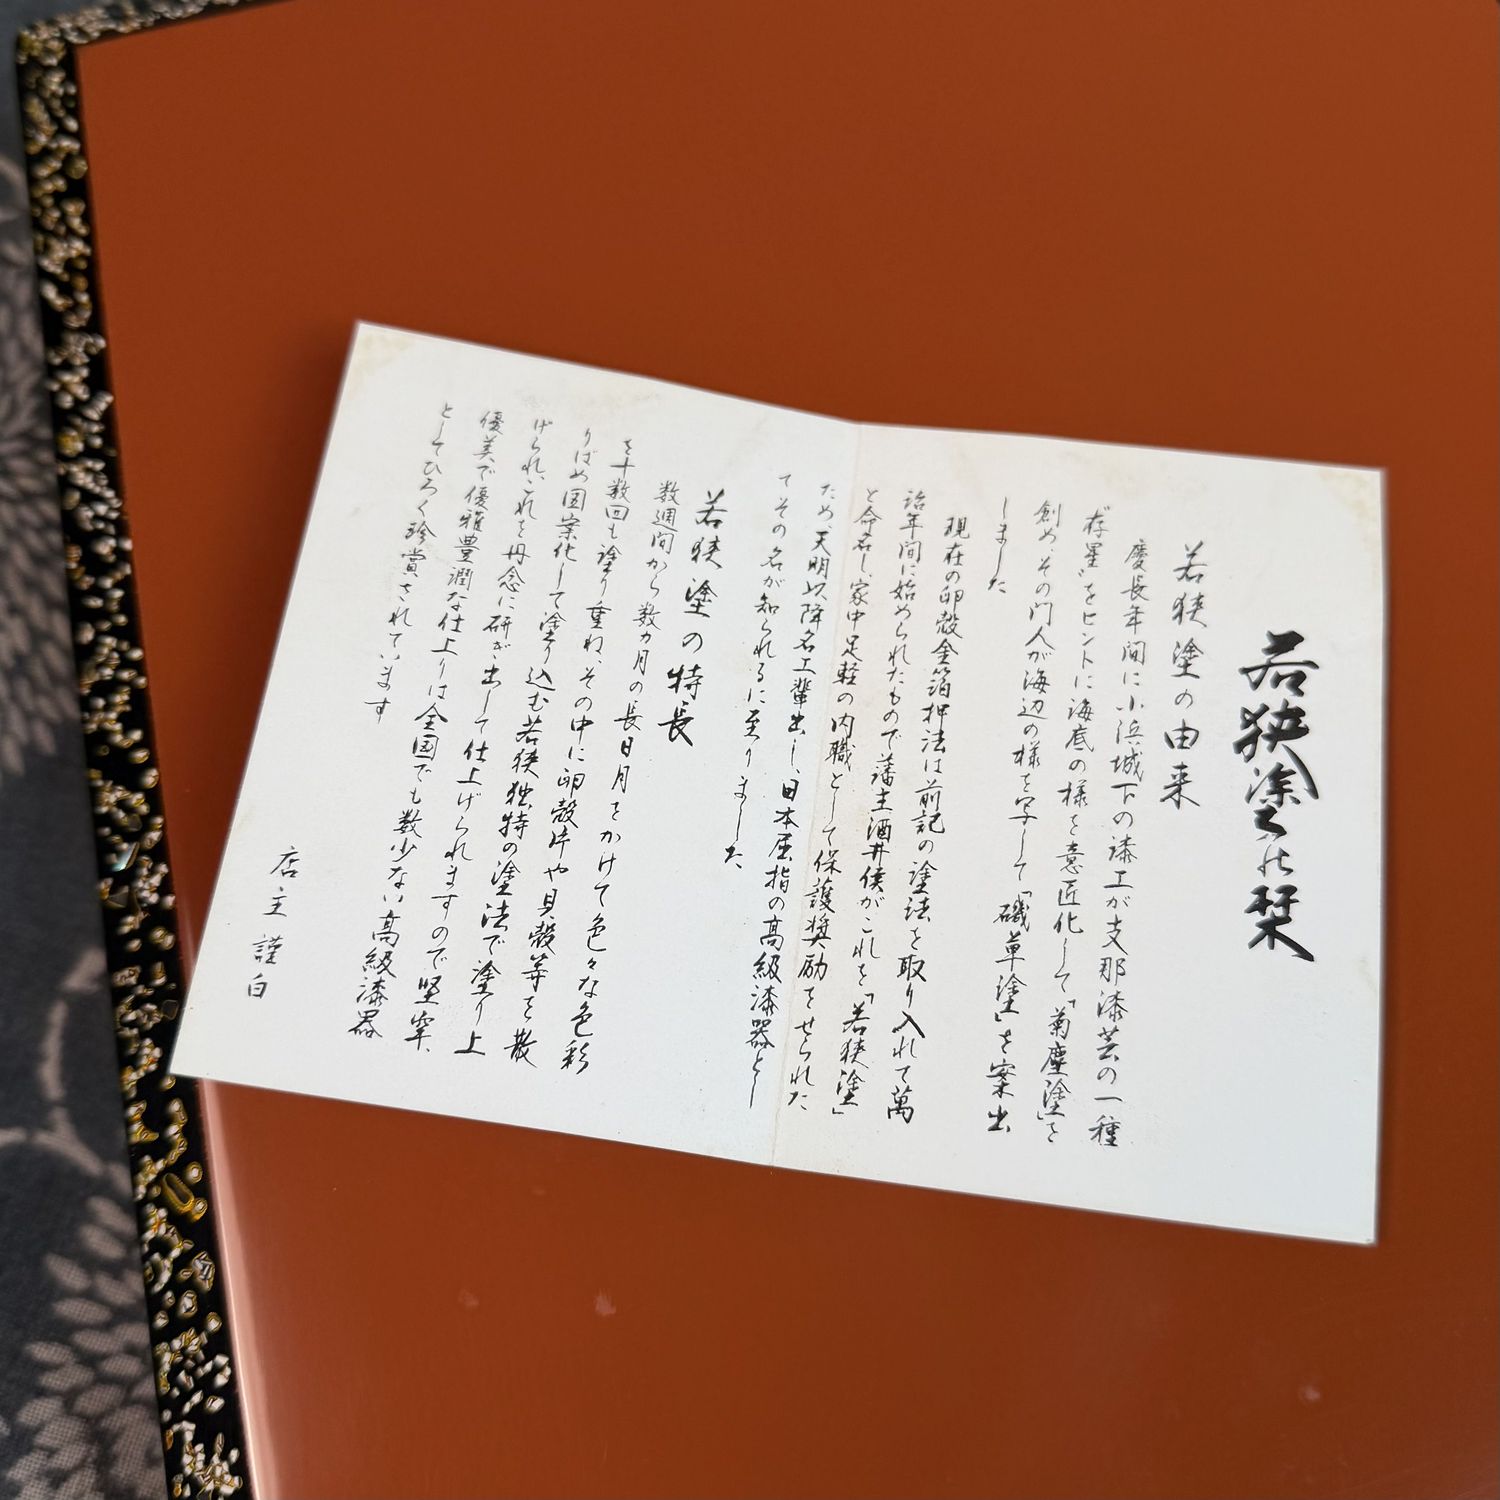 若狭塗の栞
若狭塗の由来
慶長年間に小浜城下の漆工が支那漆芸の一種
“存星”をヒントに海底の様を意匠化して「菊塵塗」を
創め、その門人が海辺の様を写して「磯草塗」を案出
しました
現在の卵殻金箔押法は前記の塗法を取り入れて萬
治年間に始められたもので藩主酒井侯がこれを「若狭塗」
と命名し、家中足軽の内職として保護奨励をせられた
ため、天明以降名工輩出し、日本屈指の高級漆器とし
てその名が知られるに至りました
若狭塗の特長
数週間から数ヵ月の長日月をかけて色々な色彩
を十数回も塗り重ね、その中に卵殻片や貝殻等を散
りばめ図案化して塗り込む若狭独特の塗法で塗り上
げられ、これを丹念に研ぎ出して仕上げられますので堅牢、
優美で優雅豊潤な仕上りは全国でも数少ない高級漆器
としてひろく珍賞されています
店主謹白